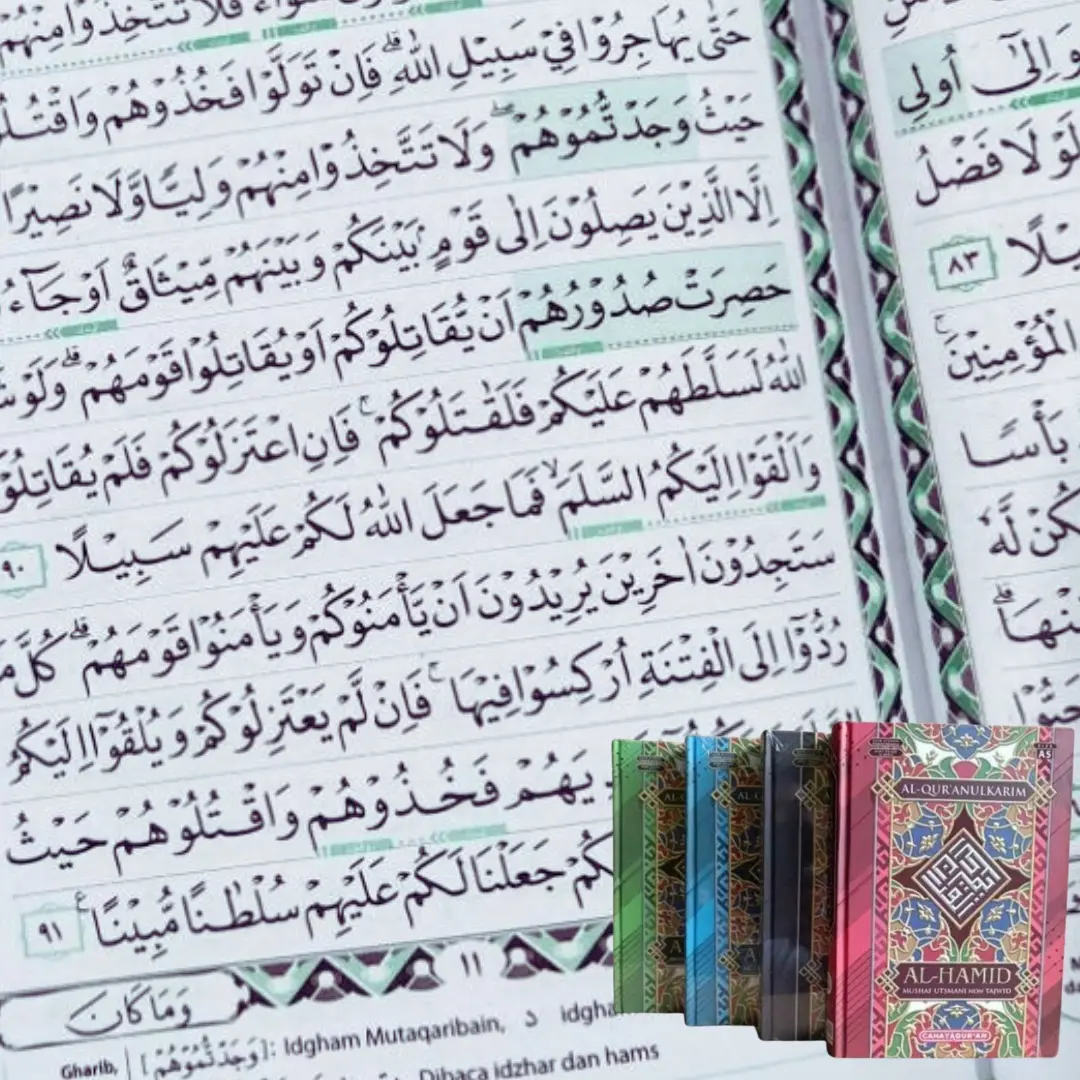 سَوَاۤءً فَلَا تَتَّخِذُوْا مِنْهُمْ
حَتّٰى يُهَاجِرُوْا فِيْ سَبِيْلِ اللّٰهِ ۗ فَاِنْ تَوَلَّوْا فَخُذُوْهُمْ
حَيْثُ وَجَدْتُّمُوْهُمْ ۖ وَلَا تَتَّخِذُوْا مِنْهُمْ وَلِيًّا وَّلَا نَصِيْرًا
اِلَّا الَّذِيْنَ يَصِلُوْنَ اِلٰى قَوْمٍۢ بَيْنَكُمْ وَبَيْنَهُمْ مِّيْثَاقٌ اَوْ
حَصِرَتْ صُدُوْرُهُمْ اَنْ يُّقَاتِلُوْكُمْ اَوْ يُقَاتِلُوْا قَوْمَهُمْ ۗ
اللّٰهُ لَسَلَّطَهُمْ عَلَيْكُمْ فَلَقٰتَلُوْكُمْ ۚ فَاِنِ اعْتَزَلُوْكُمْ فَلَمْ
وَاَلْقَوْا اِلَيْكُمُ السَّلَمَ ۙ فَمَا جَعَلَ اللّٰهُ لَكُمْ عَلَيْهِمْ سَبِيْلًا ٩٠
سَتَجِدُوْنَ اٰخَرِيْنَ يُرِيْدُوْنَ اَنْ يَّأْمَنُوْكُمْ وَيَأْمَنُوْا قَوْمَهُمْ ۗ كُلَّ
رُدُّوْٓا اِلَى الْفِتْنَةِ اُرْكِسُوْا فِيْهَا ۚ فَاِنْ لَّمْ يَعْتَزِلُوْكُمْ وَيُلْقُوْٓا اِلَيْكُمُ
فَخُذُوْهُمْ وَاقْتُلُوْهُمْ حَيْثُ
جَعَلْنَا لَكُمْ عَلَيْهِمْ سُلْطٰنًا مُّبِيْنًا ࣖ ٩١
١١
وَمَا كَانَ
Gharib, [وَجَدْتُّمُوْهُمْ]: Idgham Mutaqaribain, د
Dibaca idzhar dan hams
وَاِلٰٓى اُولِى
لَوْلَا فَضْلُ
٨٣
الْمُؤْمِنِيْنَ ۚ
بَأْسًا
لَّهٗ
AL-QUR'ANULKARIM
A5
AL-HAMID
MUSHAF UTSMANI NON TAJWID
CAHAYAQUR'AN